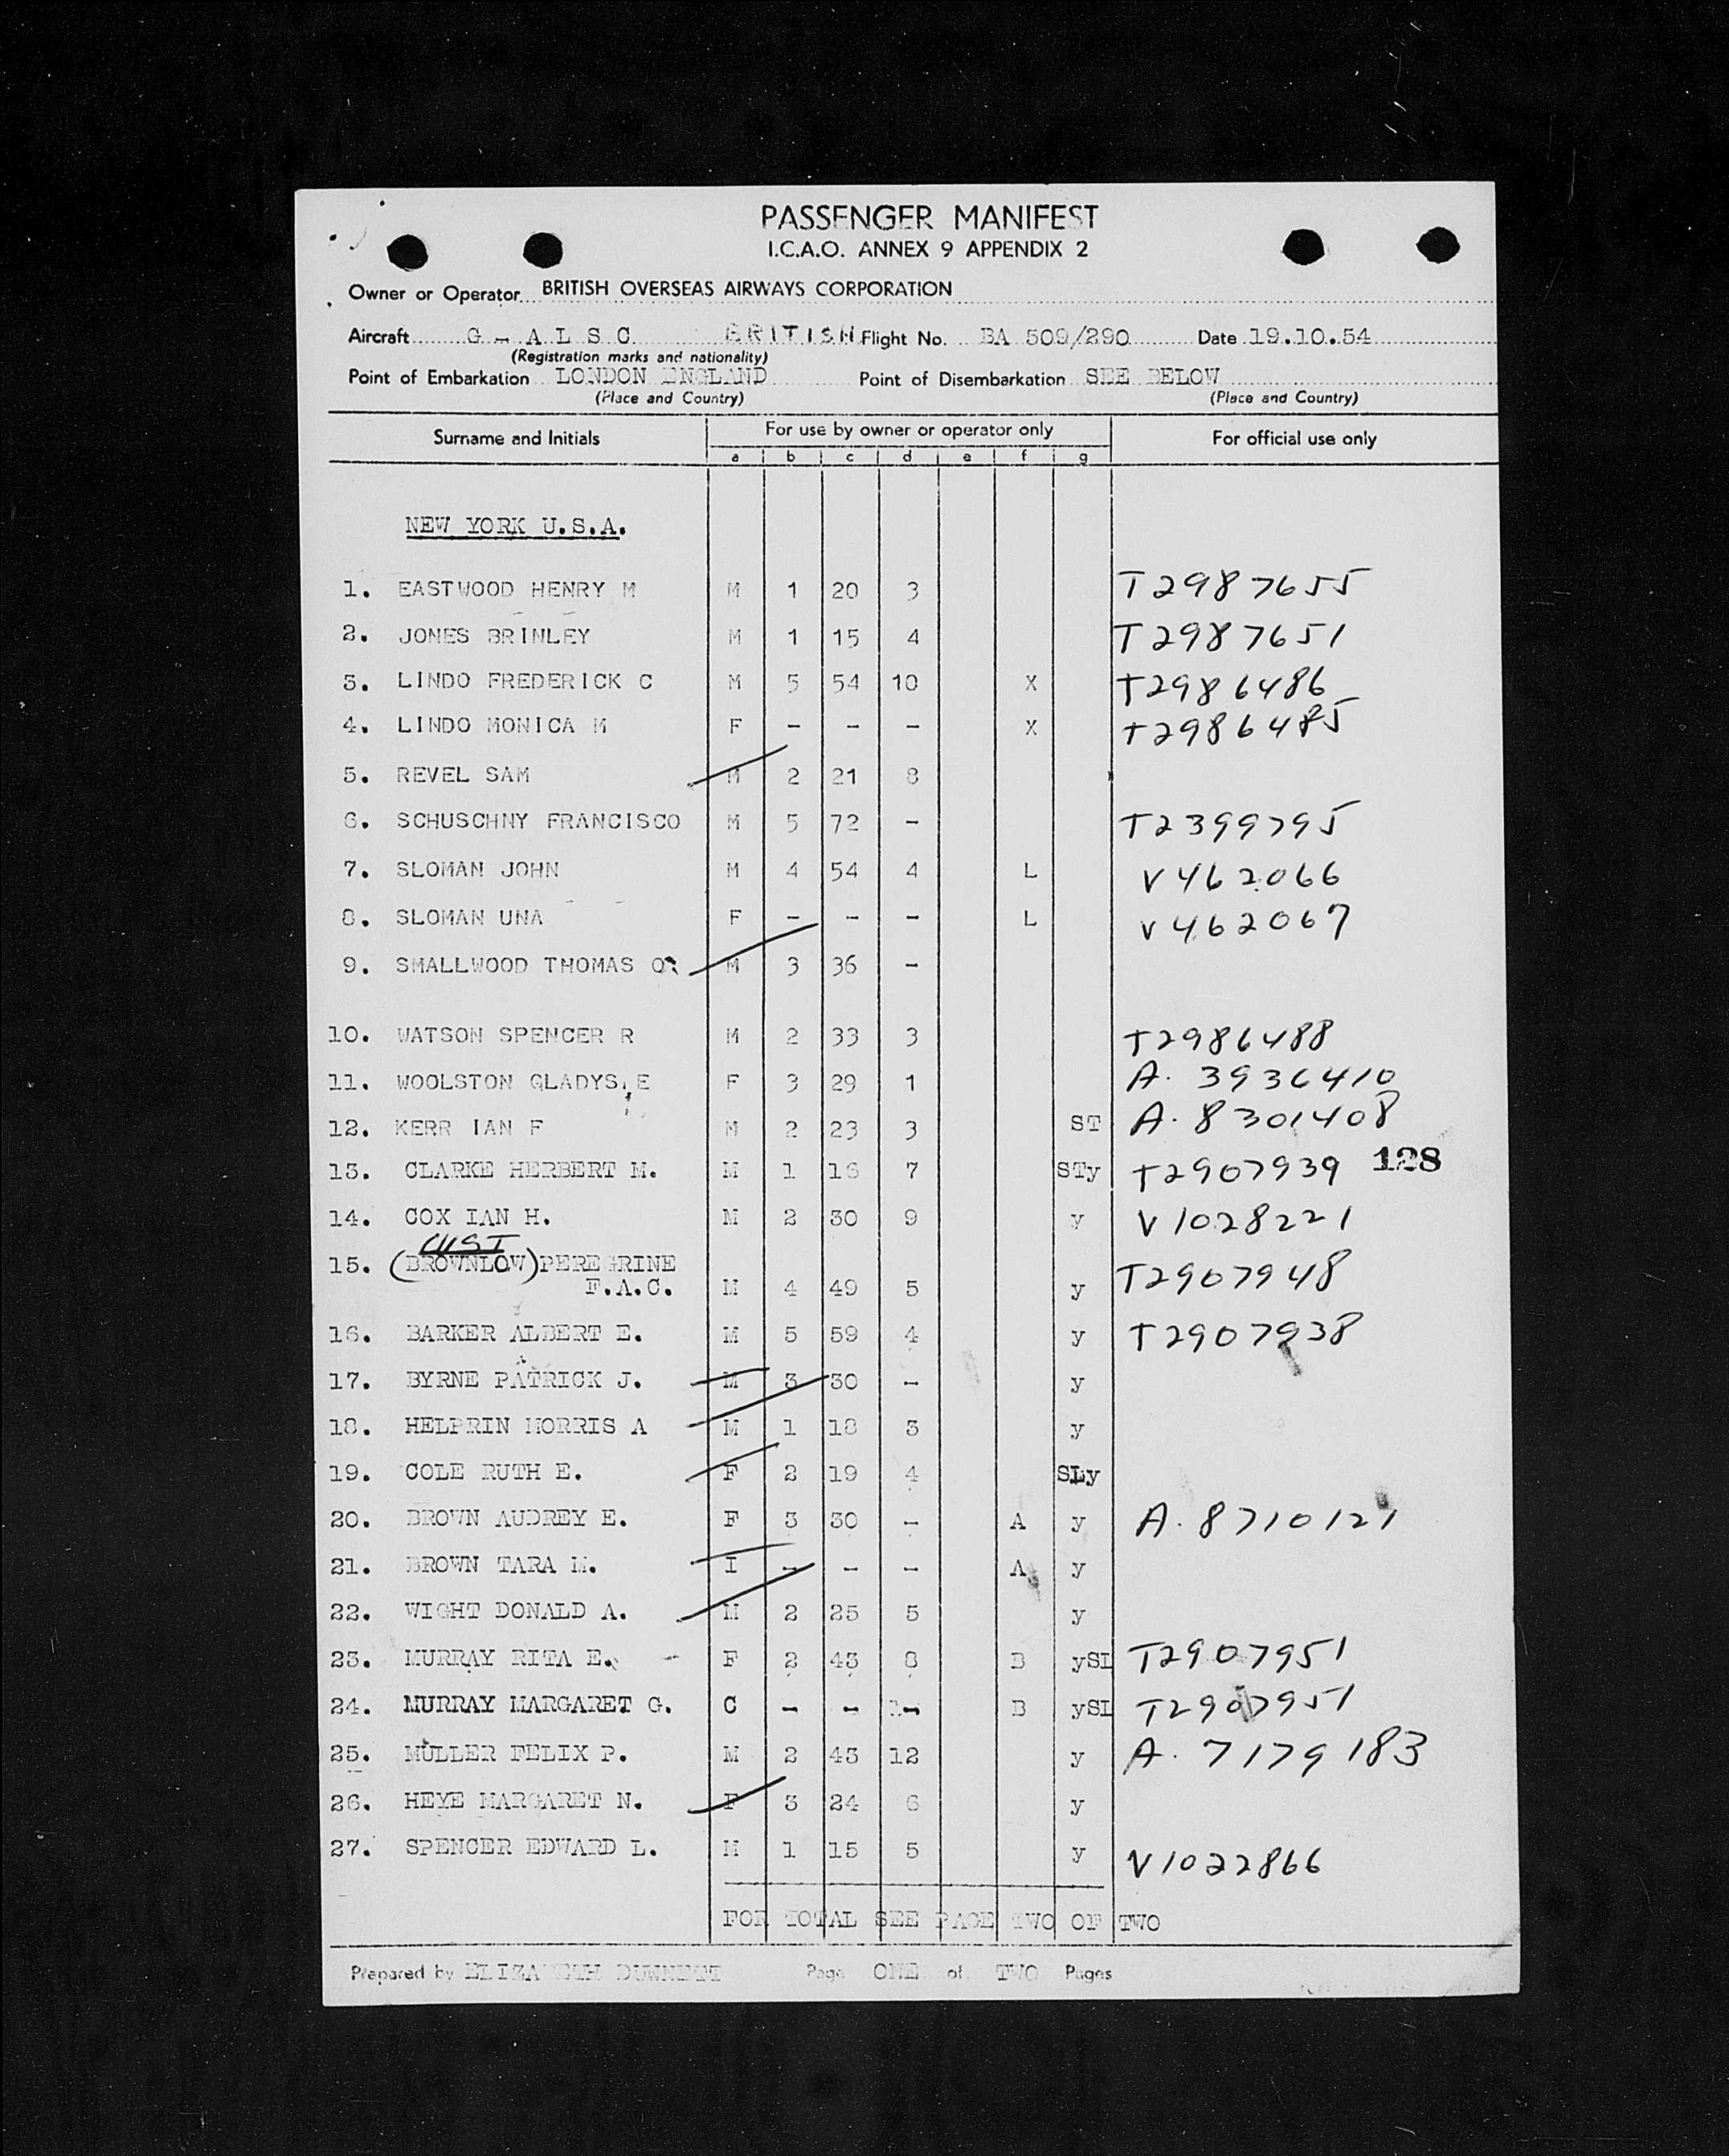 PASSENGER MANIFEST
I.C.A.O. ANNEX 9 APPENDIX 2
Owner or Operator BRITISH OVERSEAS AIRWAYS CORPORATION
Aircraft G - A L S C BRITISH Flight No. BA 509/290 Date 19.10.54
(Registration marks and nationality)
Point of Embarkation LONDON ENGLAND Point of Disembarkation SEE BELOW
(Place and Country) (Place and Country)
Surname and Initials For use by owner or operator only For official use only
a b c d e f g
NEW YORK U.S.A.
1. EASTWOOD HENRY M M 1 20 3 T2987655
2. JONES BRINLEY M 1 15 4 T2987651
3. LINDO FREDERICK C M 5 54 10 X T2986486
4. LINDO MONICA M F - - - X T2986485
5. REVEL SAM M 2 21 8
6. SCHUSCHNY FRANCISCO M 5 72 - T2399795
7. SLOMAN JOHN M 4 54 4 L V462066
8. SLOMAN UNA F - - - L V462067
9. SMALLWOOD THOMAS O M 3 36 -
10. WATSON SPENCER R M 2 33 3 T2986488
11. WOOLSTON GLADYS E F 3 29 1 A. 3936410
12. KERR IAN F M 2 23 3 ST A. 8301408
13. CLARKE HERBERT M. M 1 16 7 STy T2907939 128
14. COX IAN H. M 2 30 9 y V1028221
CUST
15. (BROWNLOW) PEREGRINE T2907948
F.A.C. M 4 49 5 y
16. BARKER ALBERT E. M 5 59 4 y T2907938
17. BYRNE PATRICK J. M 3 30 - y
18. HELPRIN MORRIS A M 1 18 3 y
19. COLE RUTH E. F 2 19 4 SLy
20. BROWN AUDREY E. F 3 30 - A y A. 8710121
21. BROWN TARA M. I - - - A y
22. WIGHT DONALD A. M 2 25 5 y
23. MURRAY RITA E. F 2 43 8 B ySL T2907951
24. MURRAY MARGARET G. C - - - B ySL T2907951
25. MULLER FELIX P. M 2 43 12 y A. 7179183
26. HEYE MARGARET N. F 3 24 6 y
27. SPENCER EDWARD L. M 1 15 5 y V1022866
FOR TOTAL SEE PAGE TWO OF TWO
Prepared by ELIZABETH Page ONE of TWO Pages